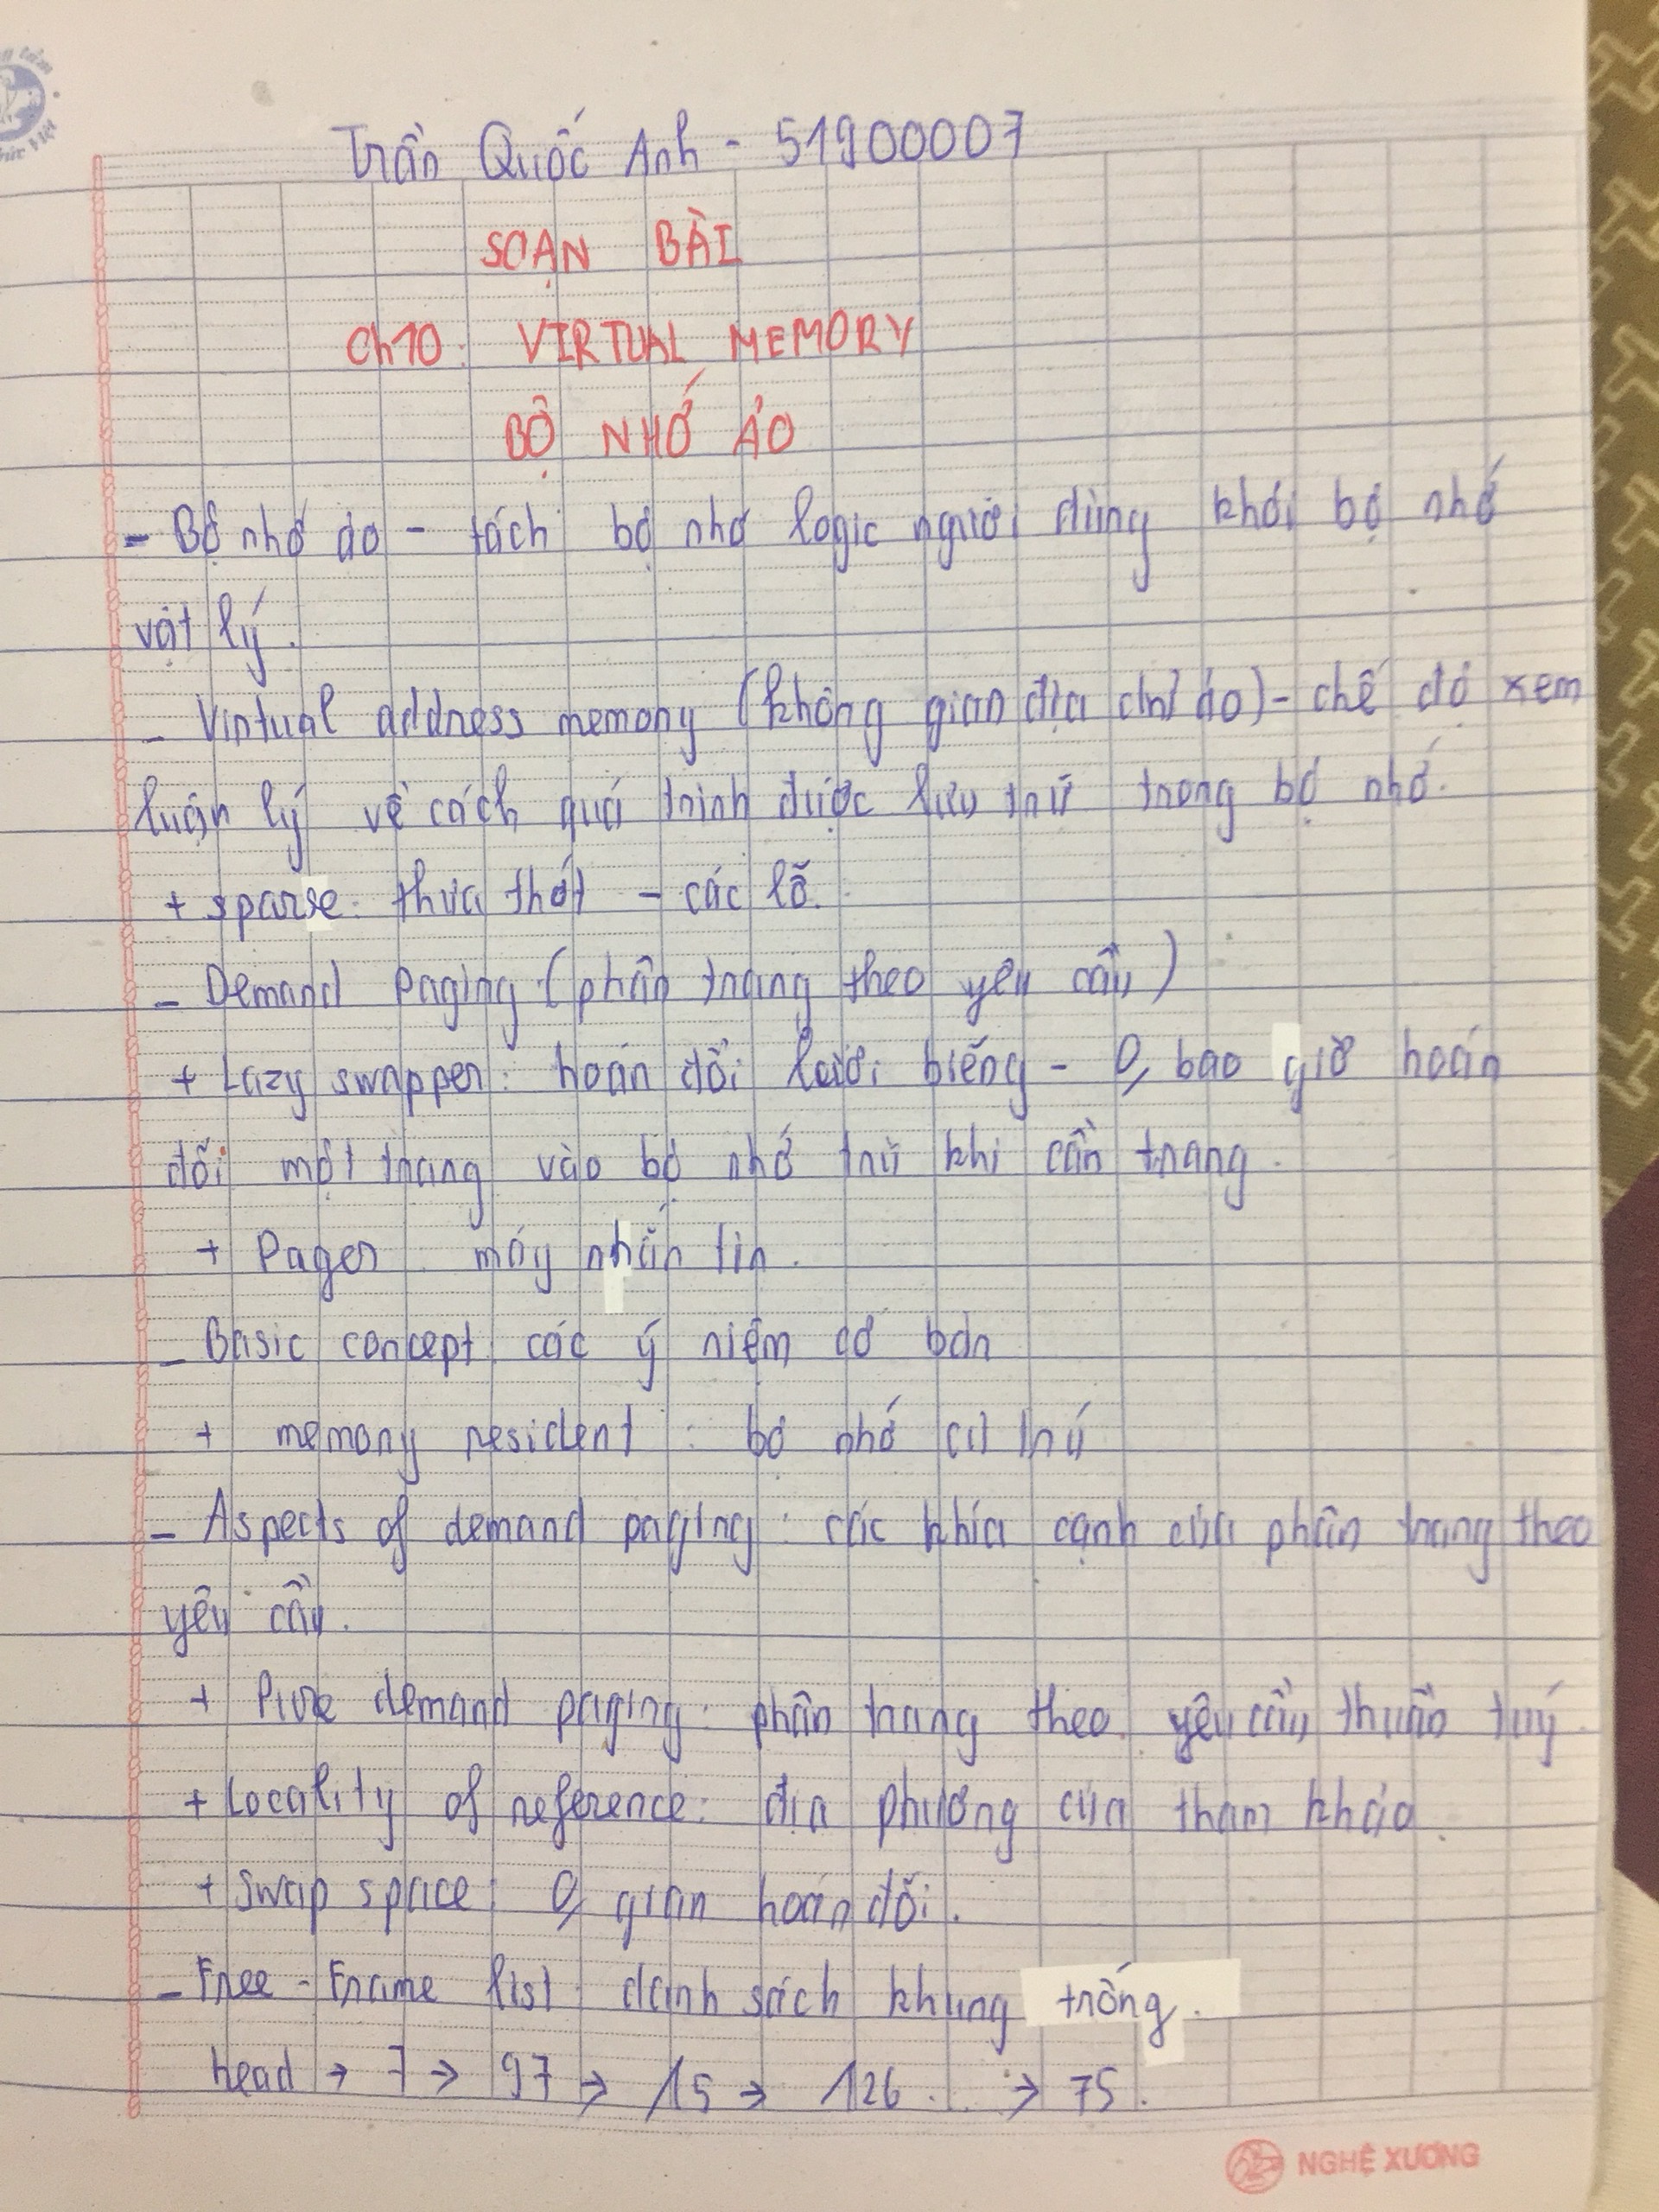 Trần Quốc Anh - 51900007
SOẠN BÀI
Ch10: VIRTUAL MEMORY
BỘ NHỚ ẢO
- Bộ nhớ ảo - tách bộ nhớ logic người dùng khỏi bộ nhớ
vật lý.
- Virtual address memory (không gian địa chỉ ảo) - chế độ xem
luận lý về cách quá trình được lưu trữ trong bộ nhớ.
+ sparse: thưa thớt - các lỗ.
- Demand Paging (phân trang theo yêu cầu)
+ Lazy swapper: hoán đổi lười biếng - 0, bao giờ hoán
đổi một trang vào bộ nhớ trừ khi cần trang.
+ Pager: máy nhắn tin.
- Basic concept: các ý niệm cơ bản
+ memory resident: bộ nhớ cư trú
- Aspects of demand paging: các khía cạnh của phân trang theo
yêu cầu.
+ Pure demand paging: phân trang theo yêu cầu thuần tuý
+ Locality of reference: địa phương của tham khảo
+ Swap space: 0, gian hoán đổi.
- Free - Frame list: danh sách khung trống.
head → 7 → 97 → 15 → 126 ... → 75.
NGHỆ XƯƠNG